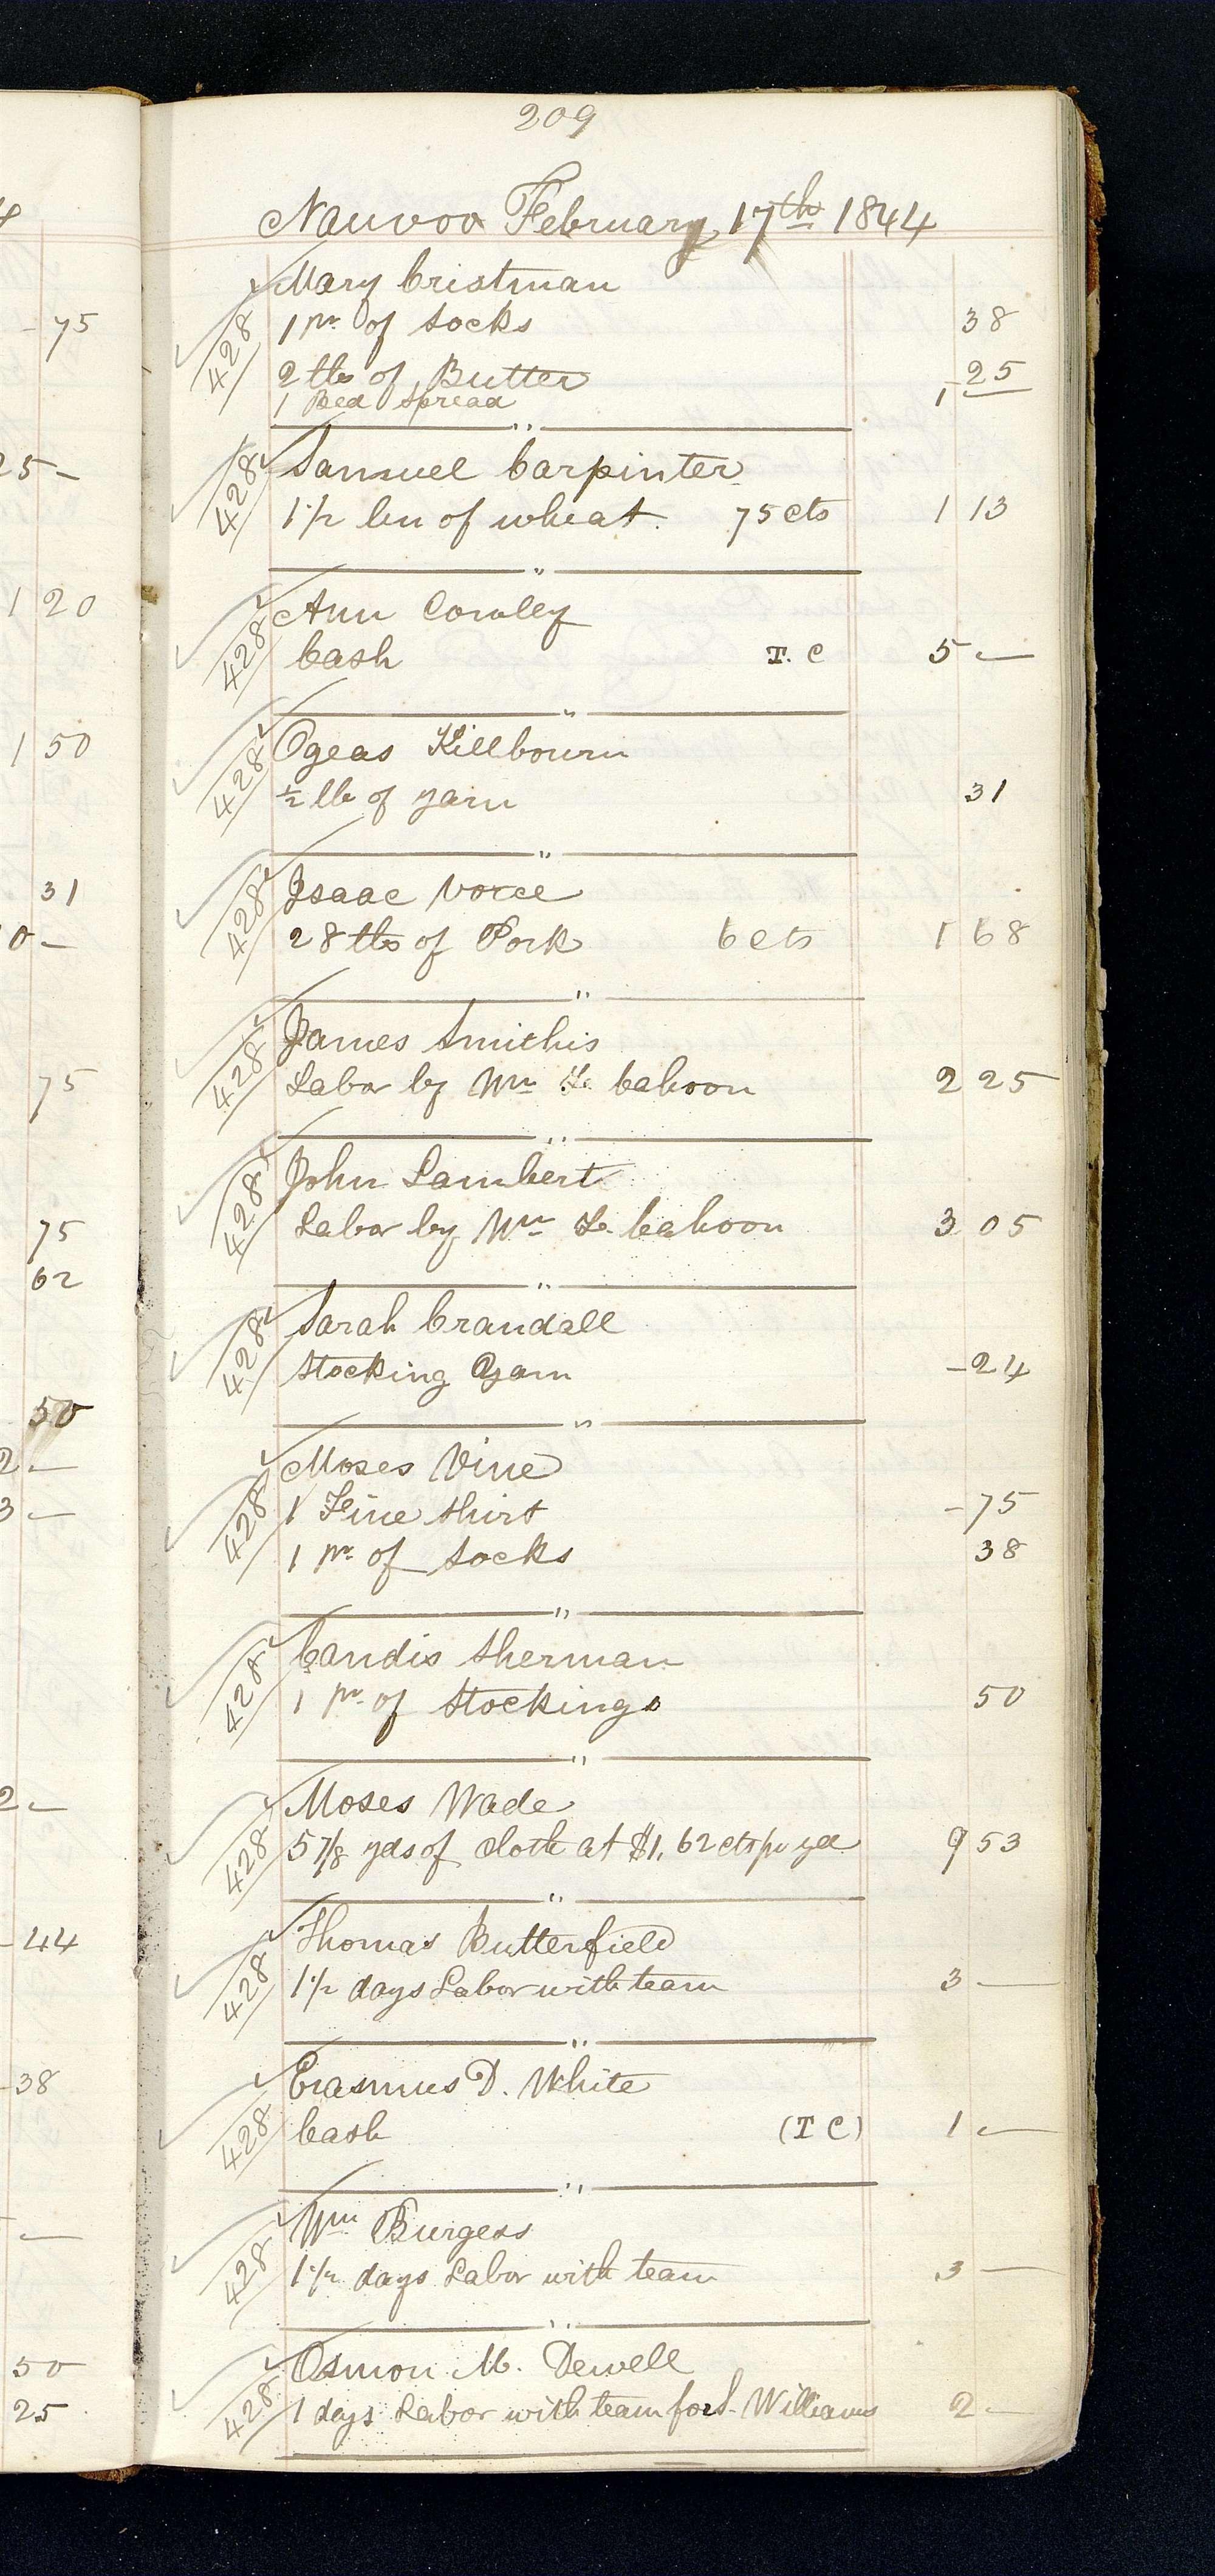 209
Nauvoo February 17th 1844
Mary Cristman
428 1 pr of Socks 38
2 lbs of Butter 25
1 Bed Spread 1 —
Samuel Carpinter
428 1 1/2 bu of wheat. 75 cts 1 13
Ann Cowley
428 Cash T. C 5 —
Ogeas Killbourn
428 1/2 lb of yarn 31
Isaac Vorce
428 28 lbs of Pork 6 cts 1 68
James Smithis
428 Labor by Wm F. Cahoon 2 25
John Lambert
428 Labor by Wm F. Cahoon 3 05
Sarah Crandall
428 Stocking Yarn - 24
Moses Vine
428 1 Fine Shirt - 75
1 pr of Socks 38
Candis Sherman
428 1 pr of Stockings 50
Moses Wade
428 5 7/8 yds of Cloth at $1, 62 cts pr yd 9 53
Thomas Butterfield
428 1 1/2 days Labor with team 3 —
Erasmus D. White
428 Cash (T C) 1 —
Wm Burgess
428 1 1/2 days Labor with team 3 —
Osmon M. Dewell
428 1 days Labor with team for S. Williams 2 —
4
- 75
25 -
1 20
1 50
31
0 -
75
75
62
50
2 —
3 —
2 —
- 44
- 38
—
50
25